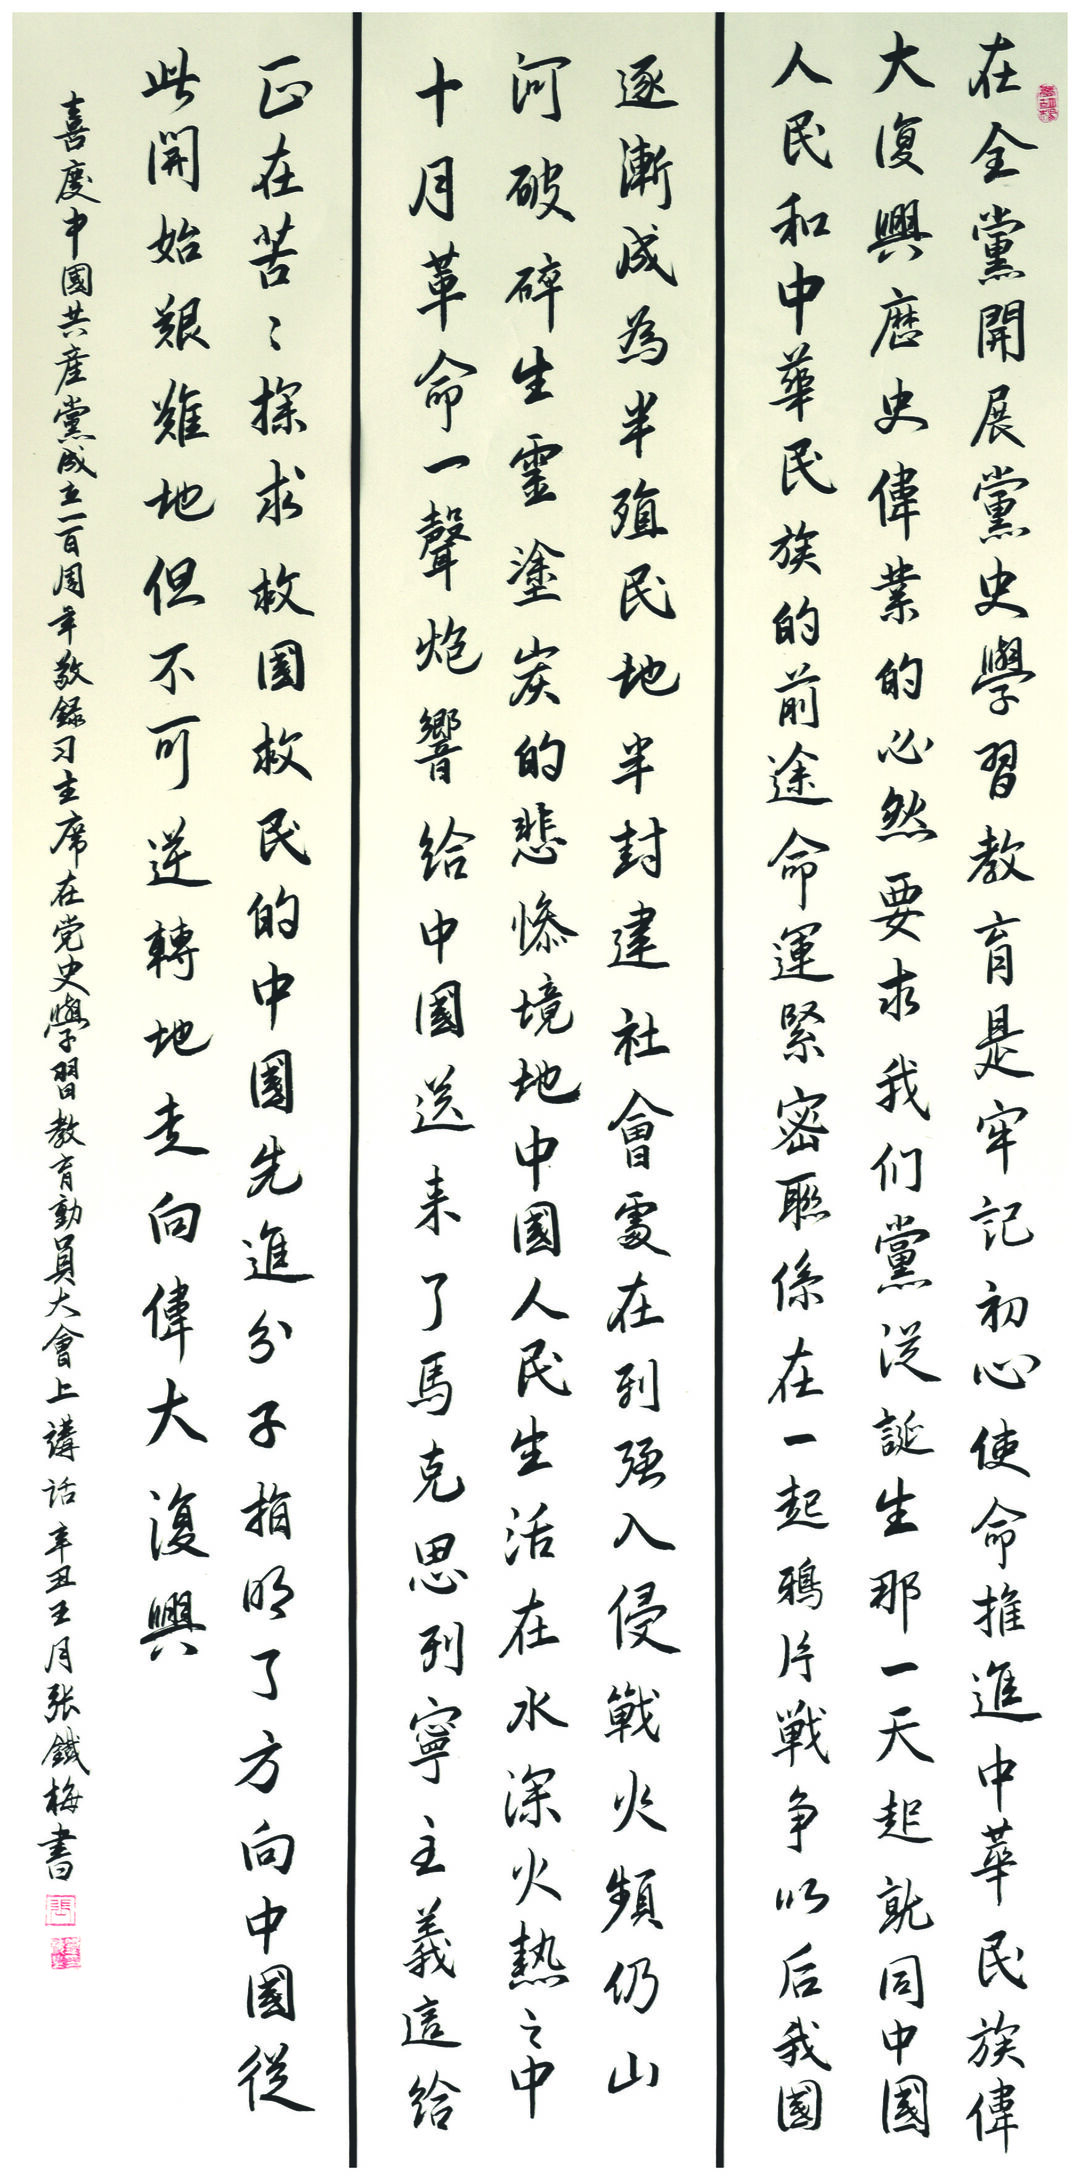 在全黨開展黨史學習教育是牢記初心使命推進中華民族偉
大復興歷史偉業的必然要求我们黨從誕生那一天起就同中國
人民和中華民族的前途命運緊密聯係在一起鴉片戰争以后我國
逐漸成為半殖民地半封建社會處在列强入侵戰火頻仍山
河破碎生靈塗炭的悲慘境地中國人民生活在水深火熱之中
十月革命一聲炮響給中國送来了馬克思列寧主義這給
正在苦〻探求救國救民的中國先進分子指明了方向中國從
此開始艱難地但不可逆轉地走向偉大復興
喜慶中國共産黨成立一百周年敬録习主席在党史學習教育動員大會上講话辛丑五月張鐵梅書